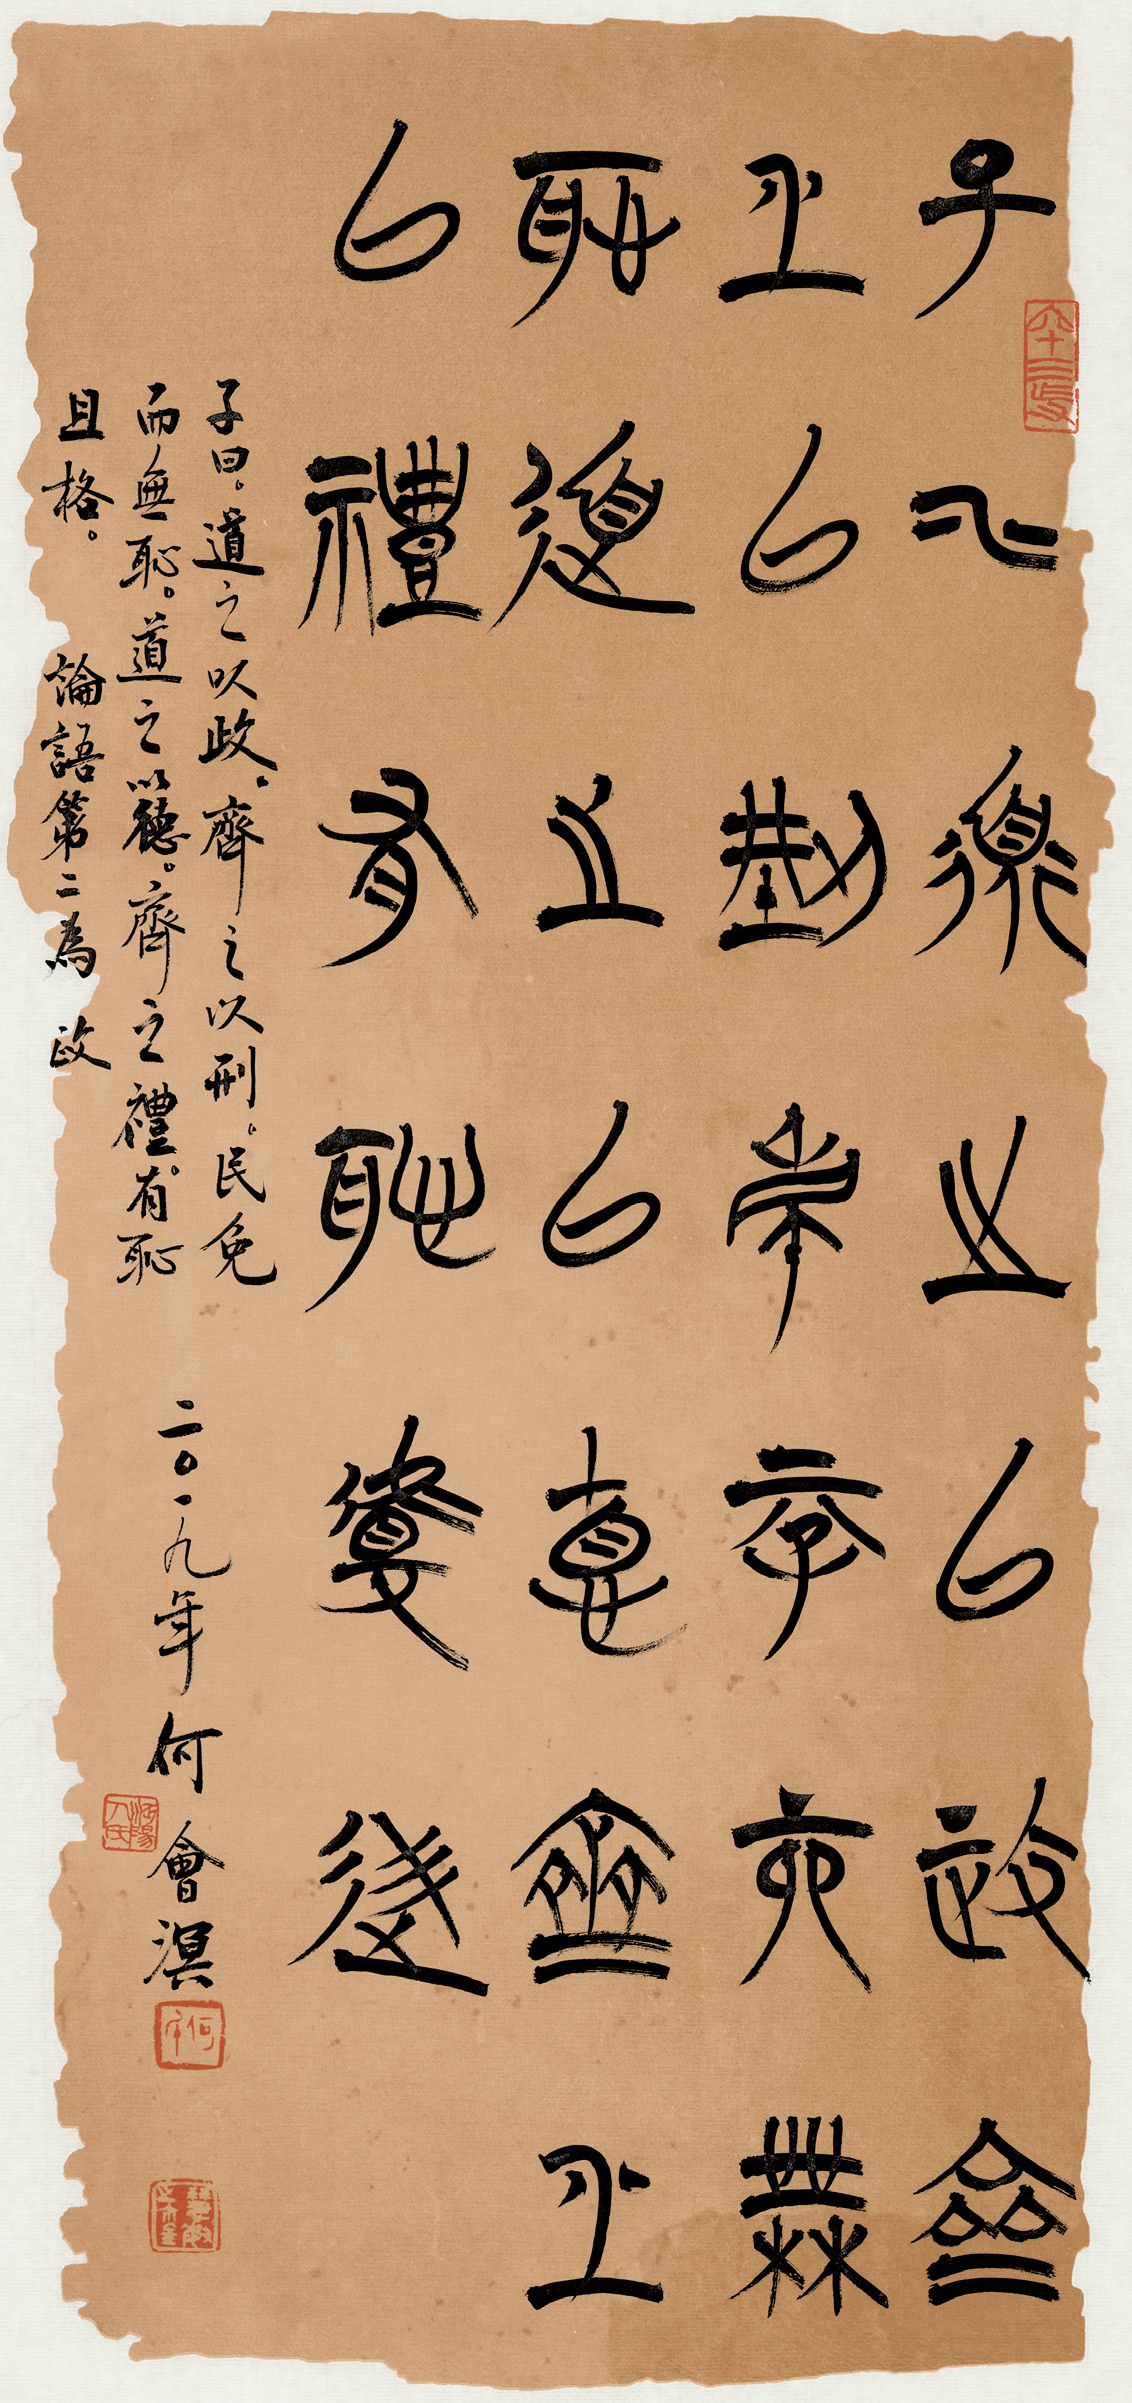 子曰道之以政齊
之以刑民免而無
恥道之以德齊之
以禮有恥且格
子曰。道之以政。齊之以刑。民免
而無恥。道之以德。齊之禮有恥
且格。 論語第二為政
二〇一九年何會溟